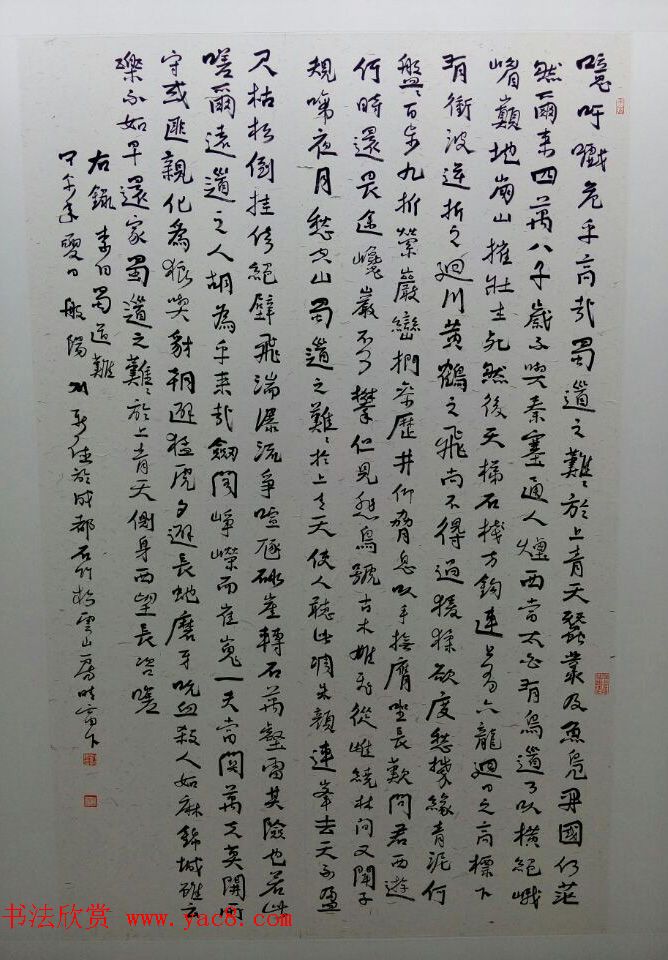 噫吁戲危乎高哉蜀道之難〻於上青天蠶叢及魚鳧開國何茫
然爾來四萬八千歲不與秦塞通人煙西當太白有鳥道可以橫絕峨
嵋巔地崩山摧壯士死然後天梯石棧方鉤連上有六龍迴日之高標下
有衝波逆折之迴川黃鶴之飛尚不得過猨猱欲度愁攀緣青泥何
盤〻百步九折縈巖巒捫參歷井仰脅息以手撫膺坐長歎問君西遊
何時還畏途巉巖不可攀但見悲鳥號古木雄飛從雌繞林間又聞子
規啼夜月愁空山蜀道之難〻於上青天使人聽此凋朱顏連峯去天不盈
尺枯松倒挂倚絕壁飛湍瀑流爭喧豗砯崖轉石萬壑雷其險也若此
嗟爾遠道之人胡為乎來哉劍閣崢嶸而崔嵬一夫當關萬夫莫開所
守或匪親化為狼與豺朝避猛虎夕避長蛇磨牙吮血殺人如麻錦城雖云
樂不如早還家蜀道之難〻於上青天側身西望長咨嗟
右錄李白蜀道難
甲午年夏日般陽於成都石竹雪山房時
书法欣赏 www.yac8.com